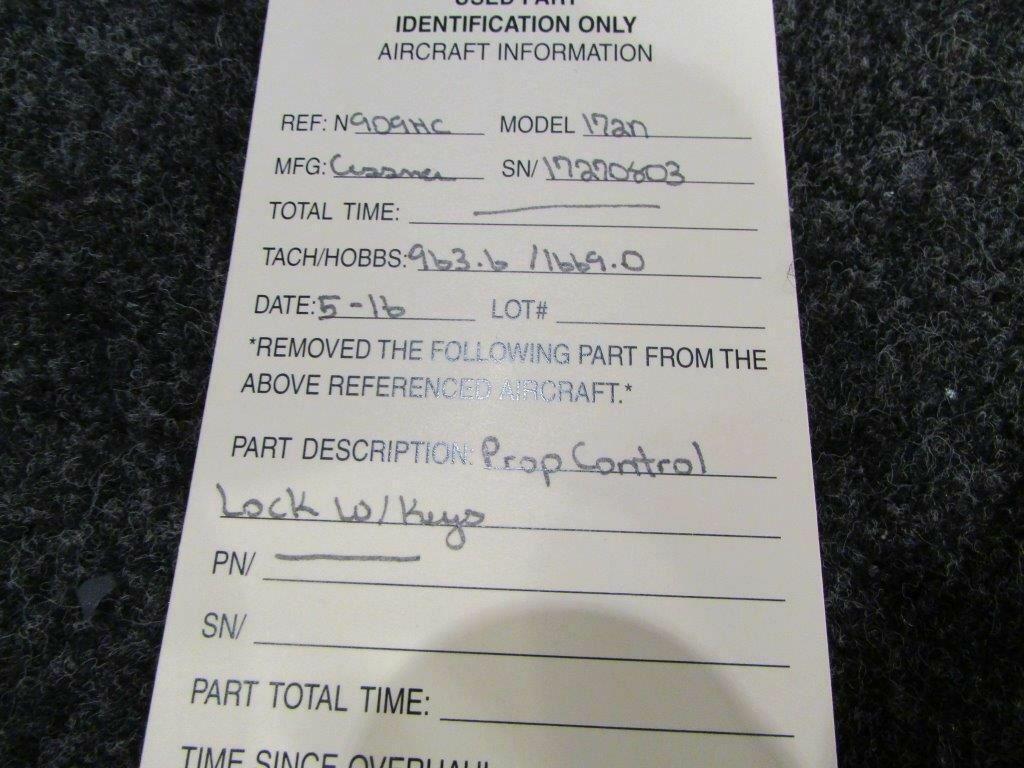 USED PART
IDENTIFICATION ONLY
AIRCRAFT INFORMATION
REF: N909HC MODEL 172n
MFG: Cessna SN/ 17270603
TOTAL TIME:
TACH/HOBBS: 963.6 / 1669.0
DATE: 5-16 LOT#
*REMOVED THE FOLLOWING PART FROM THE
ABOVE REFERENCED AIRCRAFT.*
PART DESCRIPTION: Prop Control
Lock w/ Keys
PN/
SN/
PART TOTAL TIME:
TIME SINCE OVERHAUL